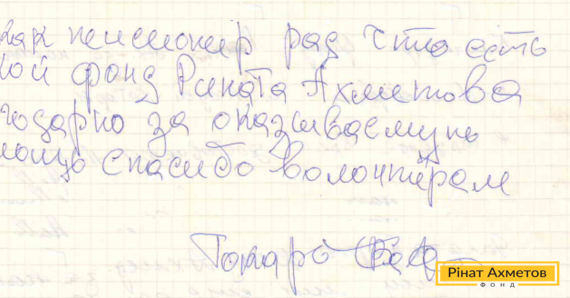 как пенсионер рад что есть
кой фонд Рината Ахметова
годарно за оказываемую
мощь спасибо волонтёрам
Рінат Ахметов
ФОНД